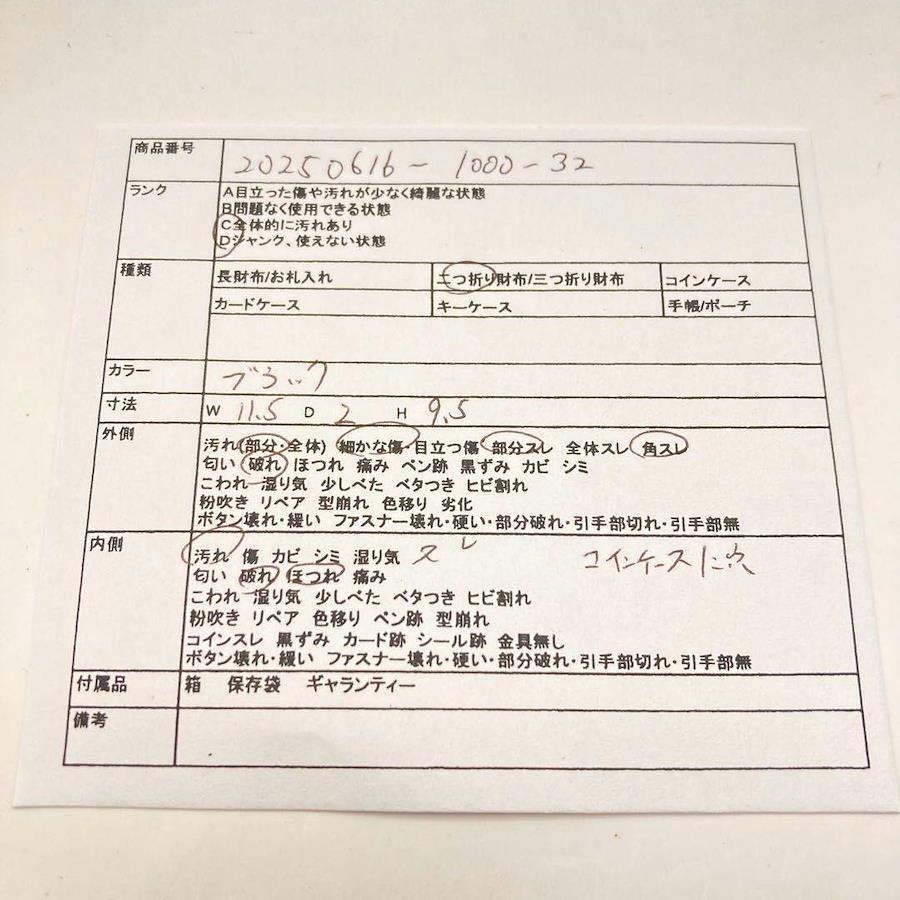 商品番号 20250616-1000-32
ランク A目立った傷や汚れが少なく綺麗な状態
B問題なく使用できる状態
C全体的に汚れあり
Dジャンク、使えない状態
種類 長財布/お札入れ 二つ折り財布/三つ折り財布 コインケース
カードケース キーケース 手帳/ポーチ
カラー ブラック
寸法 W 11.5 D 2 H 9.5
外側 汚れ(部分・全体) 細かな傷・目立つ傷 部分スレ 全体スレ 角スレ
匂い 破れ ほつれ 痛み ペン跡 黒ずみ カビ シミ
こわれ 湿り気 少しべた ベタつき ヒビ割れ
粉吹き リペア 型崩れ 色移り 劣化
ボタン壊れ・緩い ファスナー壊れ・硬い・部分破れ・引手部切れ・引手部無
内側 汚れ 傷 カビ シミ 湿り気 スレ コインケースに
匂い 破れ ほつれ 痛み
こわれ 湿り気 少しべた ベタつき ヒビ割れ
粉吹き リペア 色移り ペン跡 型崩れ
コインスレ 黒ずみ カード跡 シール跡 金具無し
ボタン壊れ・緩い ファスナー壊れ・硬い・部分破れ・引手部切れ・引手部無
付属品 箱 保存袋 ギャランティー
備考